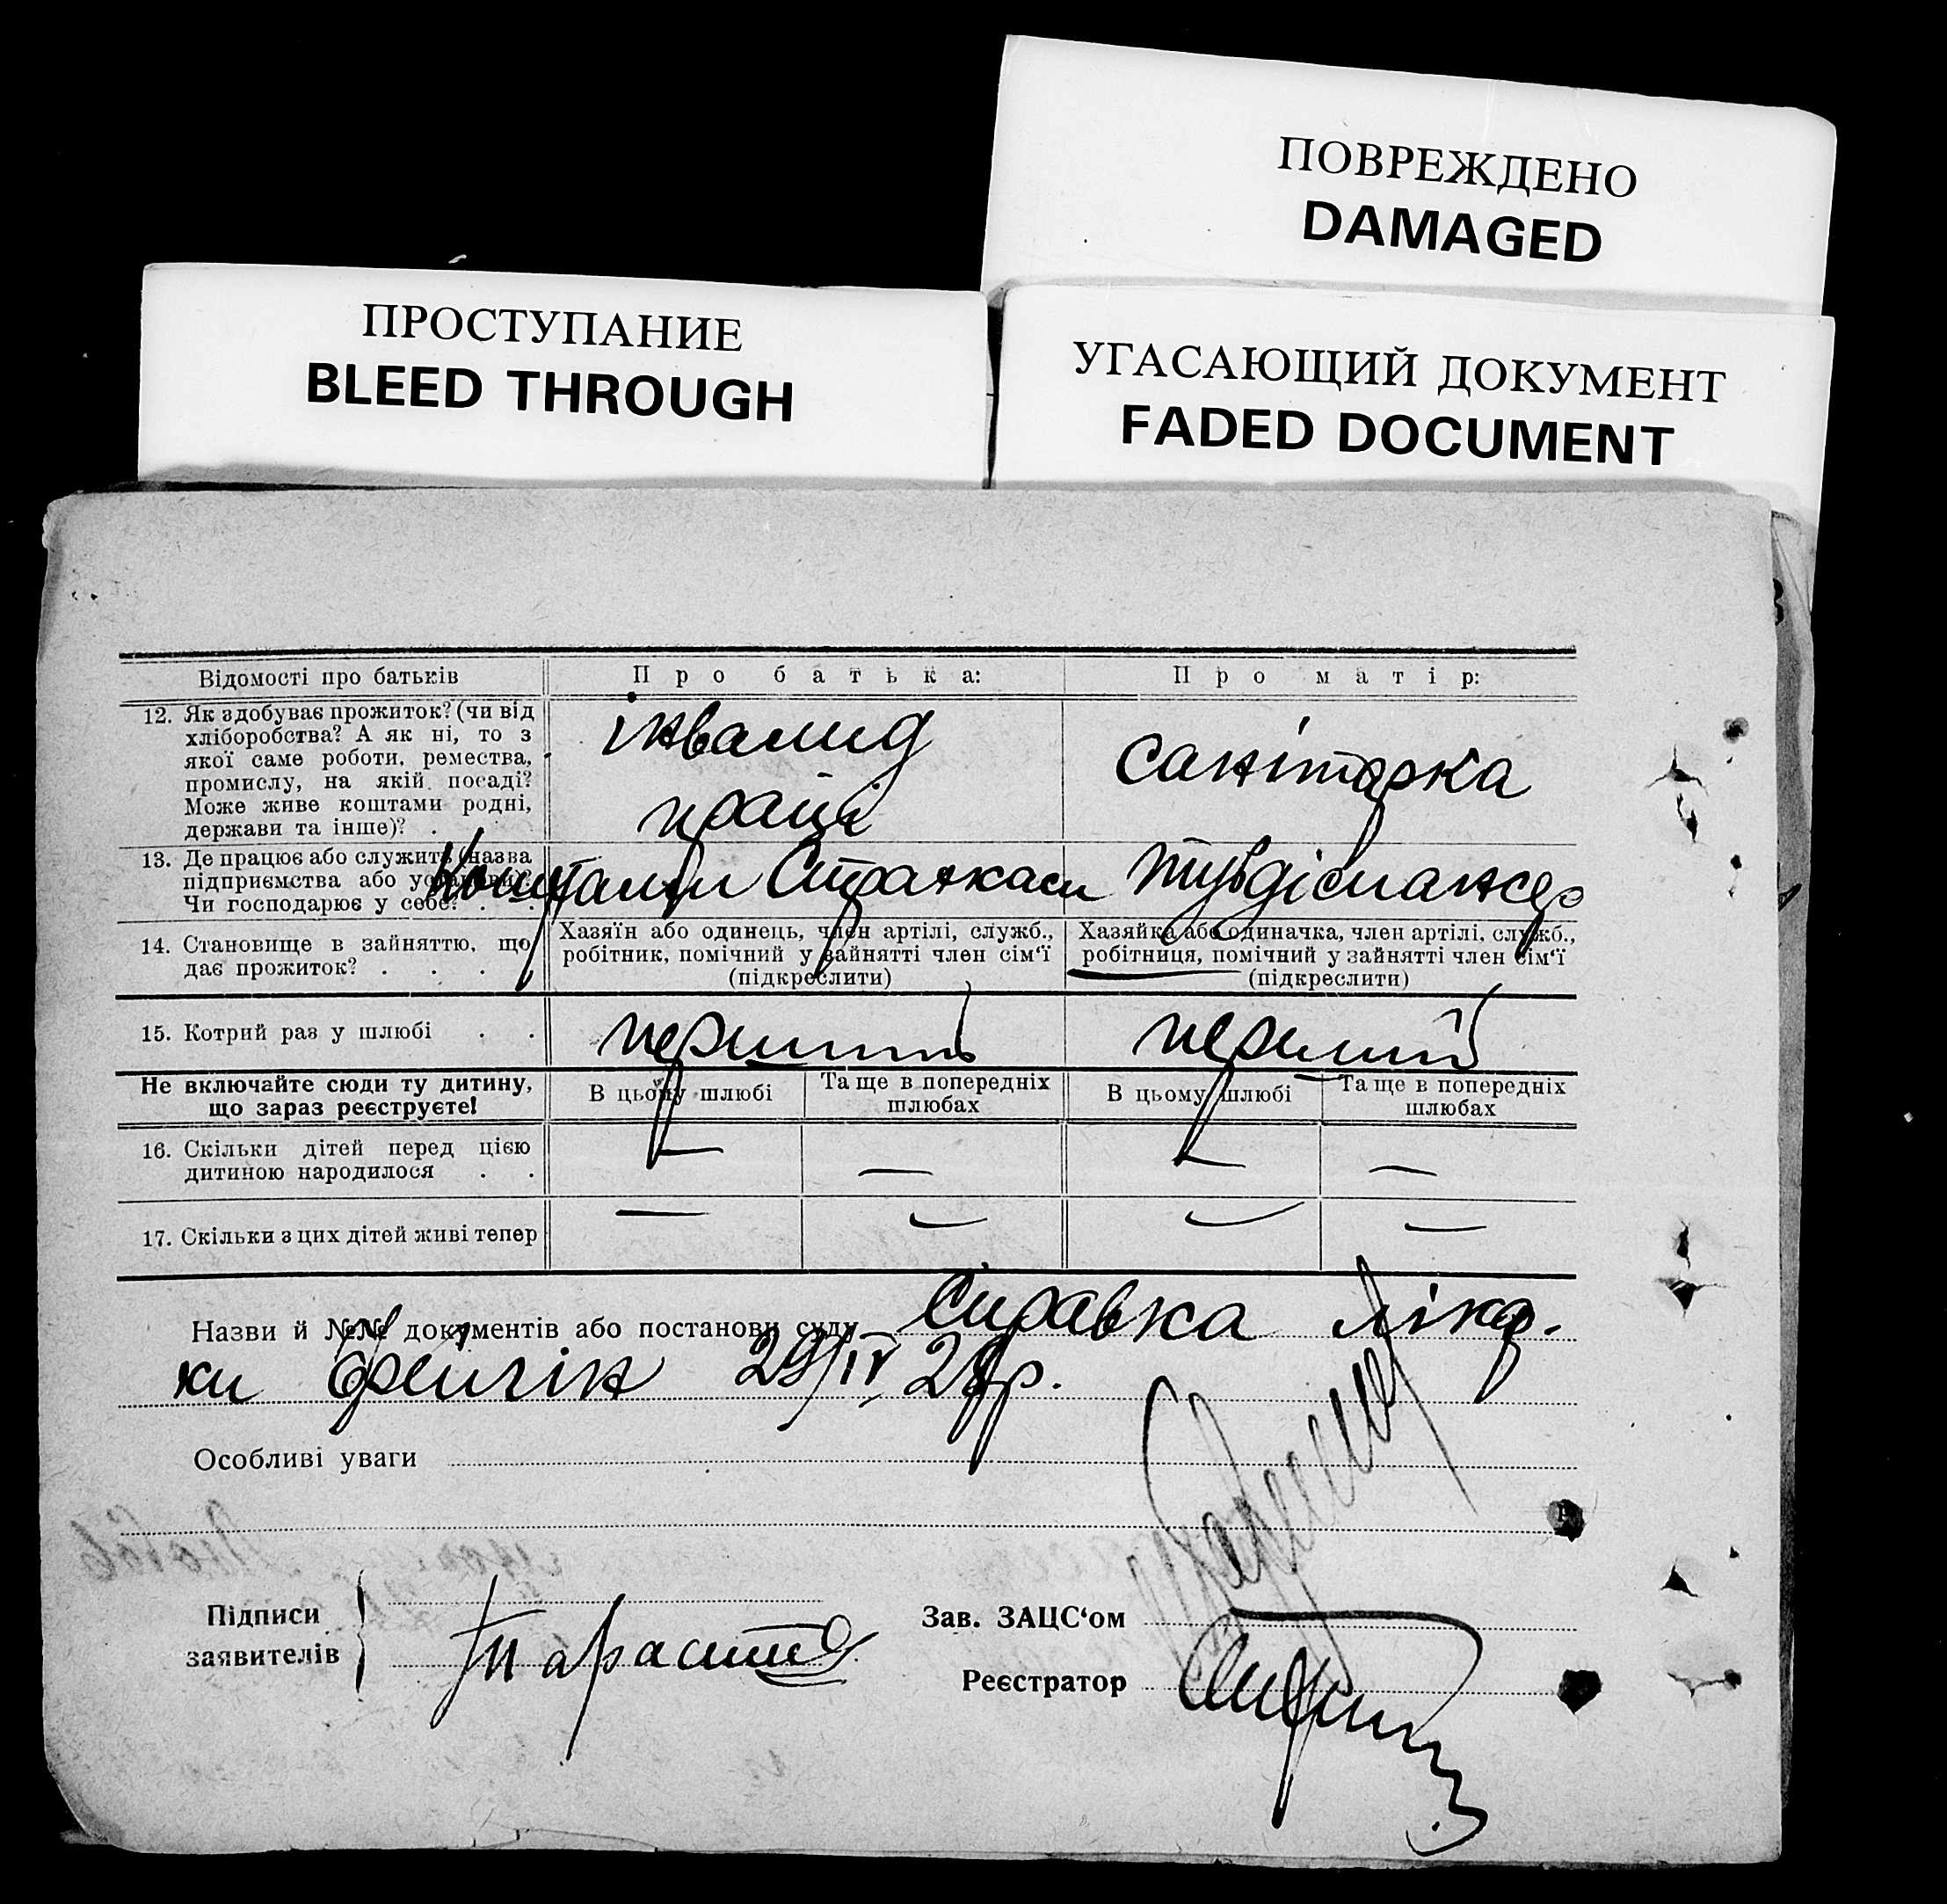 ПОВРЕЖДЕНО
DAMAGED
ПРОСТУПАНИЕ
BLEED THROUGH
УГАСАЮЩИЙ ДОКУМЕНТ
FADED DOCUMENT
Відомості про батьків
Про батька:
Про матір:
12. Як здобуває прожиток? (чи від
хліборобства? А як ні, то з
якої саме роботи, ремества,
промислу, на якій посаді?
Може живе коштами родні,
держави та інше)? .
інвалид
праці
санітарка
13. Де працює або служить (назва
підприємства або установи)?
Чи господарює у себе? . .
Коштами Страхкаси
Тубдіспансер
14. Становище в зайняттю, що
дає прожиток? . . . .
Хазяїн або одинець, член артілі, служб.,
робітник, помічний у зайнятті член сім'ї
(підкреслити)
Хазяйка або одиначка, член артілі, служб.,
робітниця, помічний у зайнятті член сім'ї
(підкреслити)
15. Котрий раз у шлюбі . .
перший
перший
Не включайте сюди ту дитину,
що зараз реєструєте!
В цьому шлюбі
Та ще в попередніх
шлюбах
В цьому шлюбі
Та ще в попередніх
шлюбах
16. Скільки дітей перед цією
дитиною народилося . .
— — — —
17. Скільки з цих дітей живі тепер
— — — —
Назви й №№ документів або постанови суду Справка лікар.
ки 29/IV 28р.
Особливі уваги
Підписи
заявителів
Зав. ЗАЦС'ом
Реєстратор